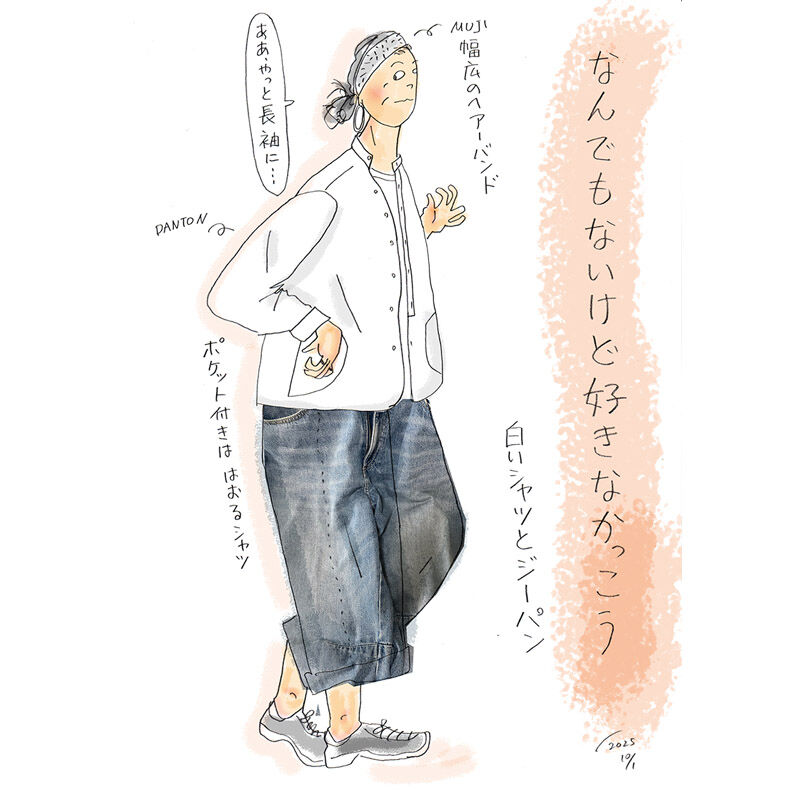 なんでもないけど好きなかっこう
白いシャツとジーパン
MUJI
幅広のヘアーバンド
ああ、やっと長袖に…
DANTON
ポケット付きは はおるシャツ
2025
10/1